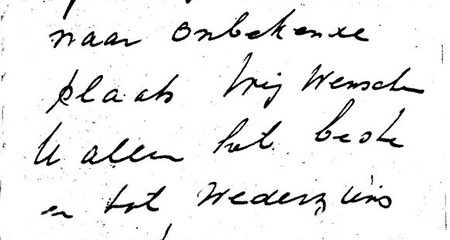 naar onbekende
plaats Wij Wensche
U allen het beste
en tot Wederziens